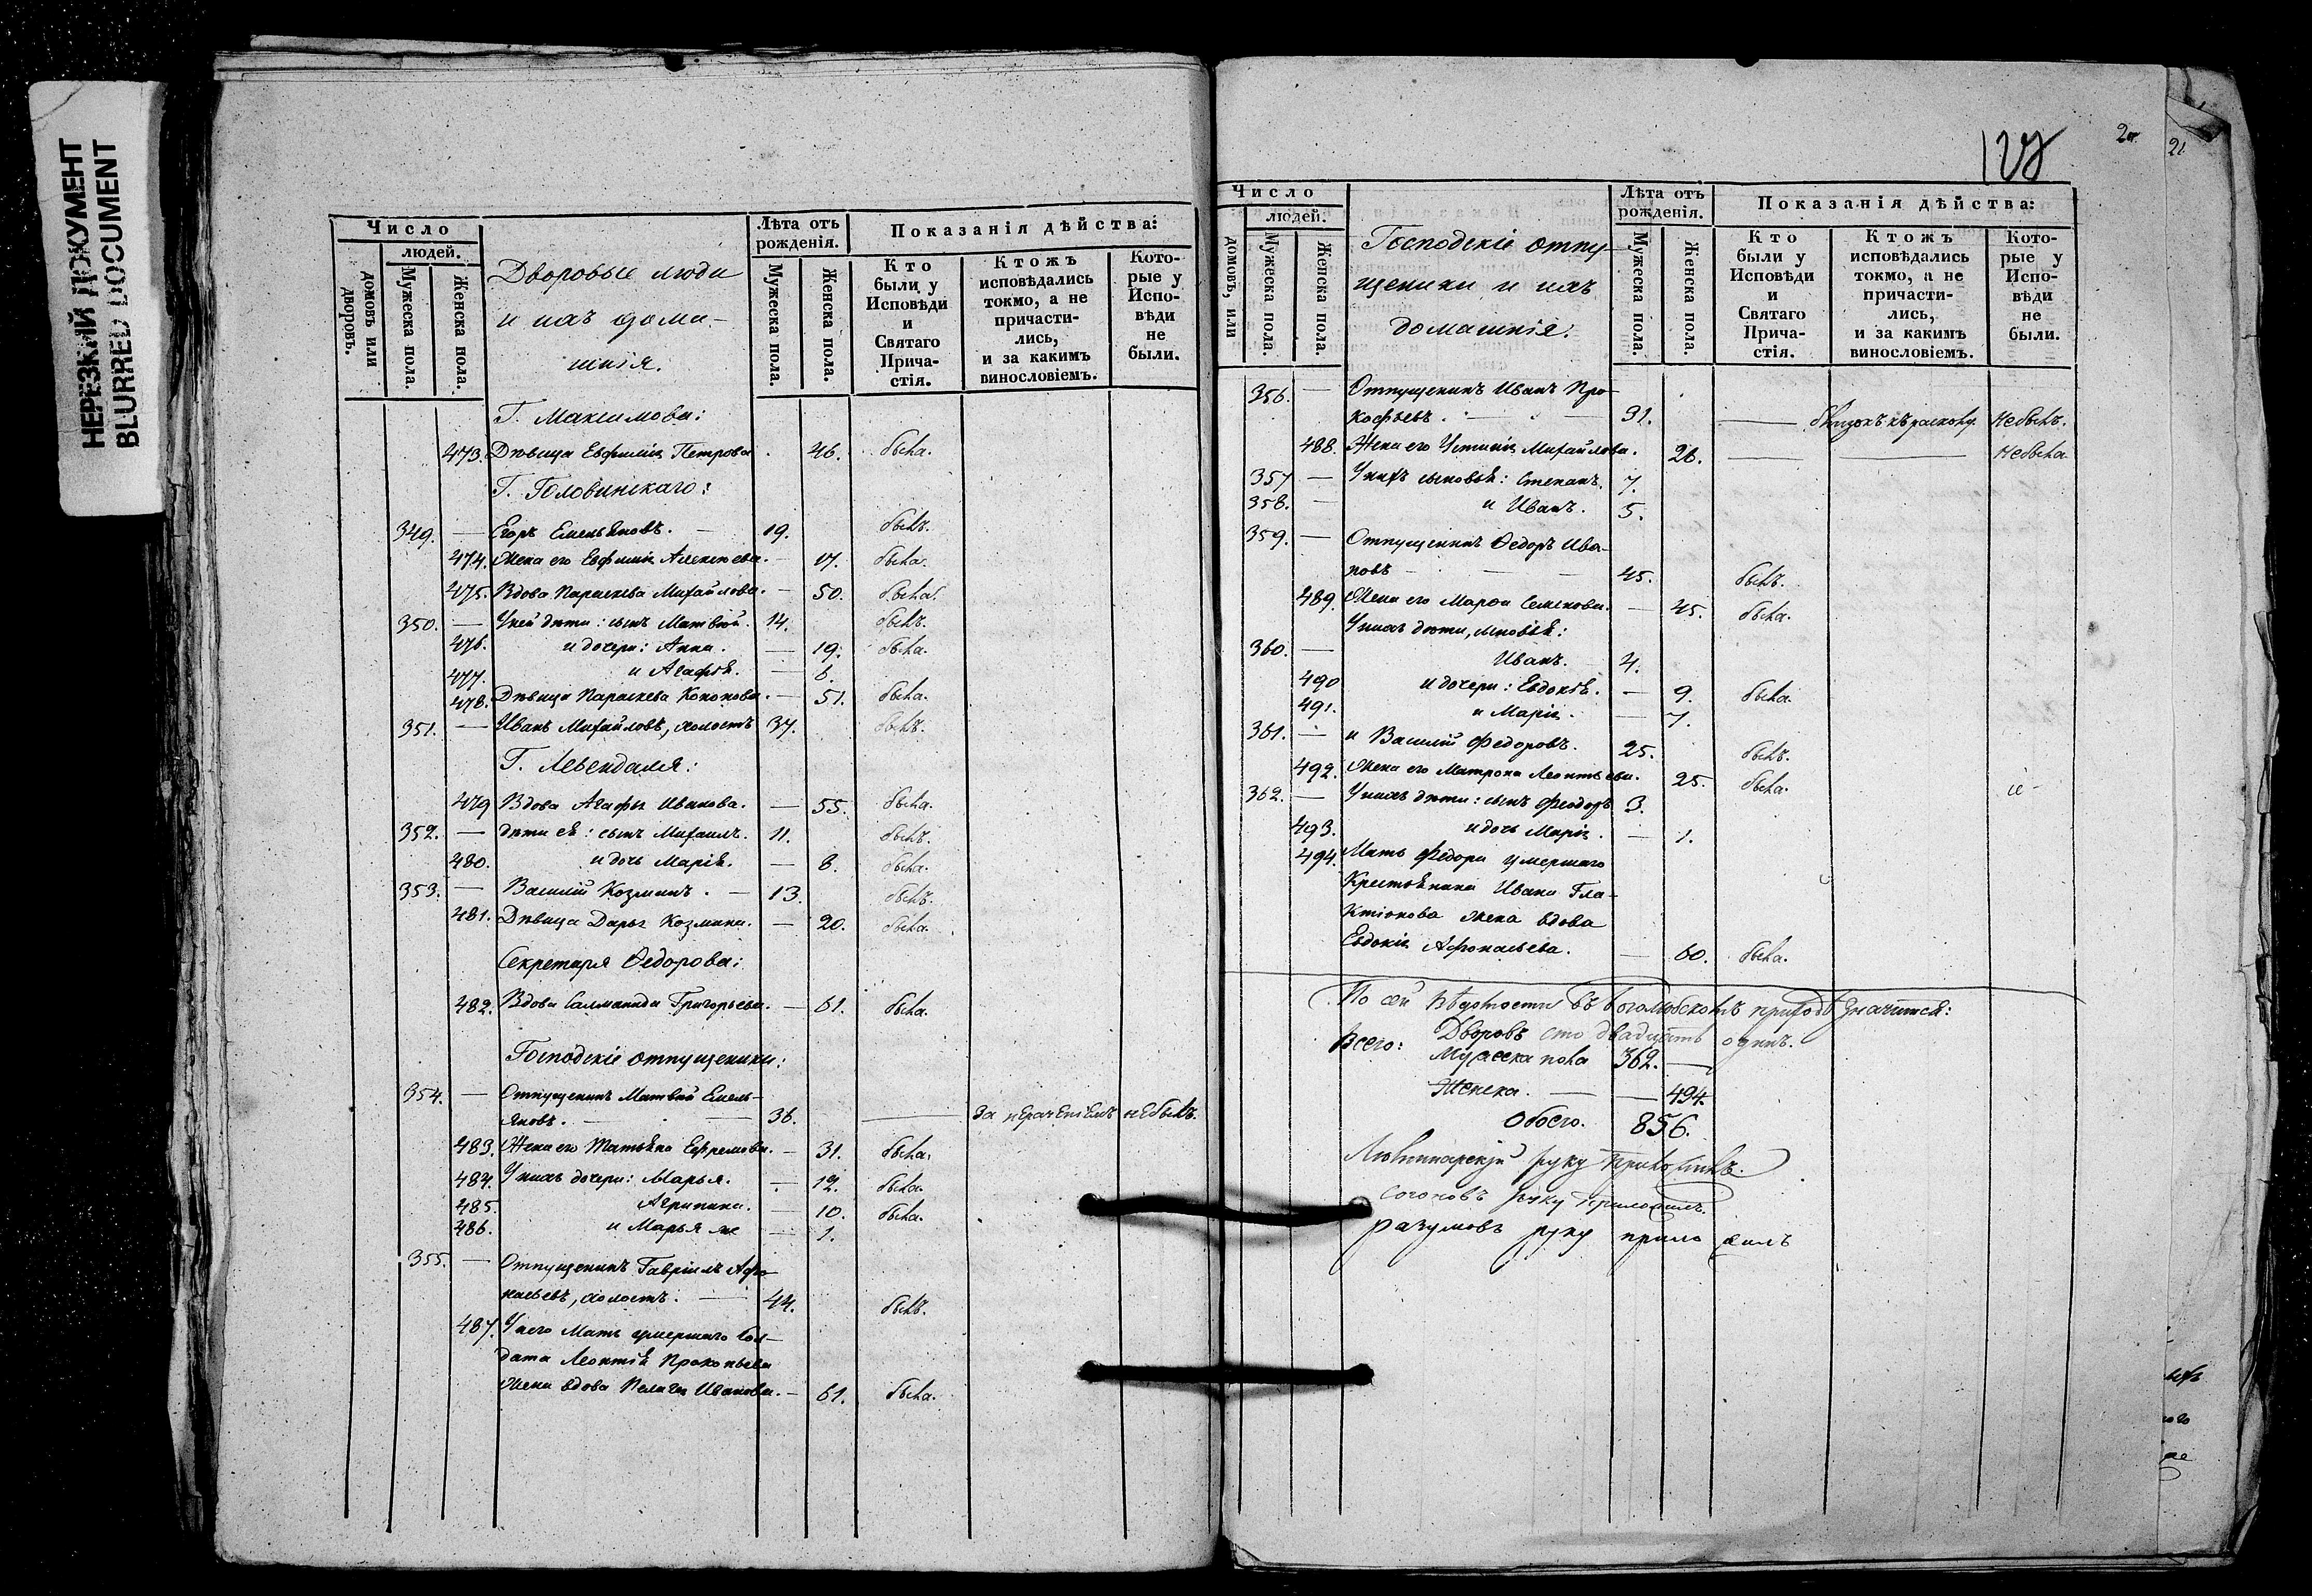 НЕРЕЗКИЙ ДОКУМЕНТ
BLURRED DOCUMENT
Число
людей.
домовъ или дворовъ.
Мужеска пола.
Женска пола.
Дворовые люди
и ихъ дома-
шнія.
Лѣта отъ рожденія.
Мужеска пола.
Женска пола.
Показанія дѣйства:
Кто были у Исповѣди и Святаго Прича-стія.
Ктожъ исповѣдались токмо, а не причасти-лись, и за какимъ винословіемъ.
Кото-рые у Испо-вѣди не были.
Г. Максимова:
473. Дѣвица Евфимія Петрова 46. была.
Г. Головинскаго:
349. — Егоръ Емельяновъ. — 19. былъ.
474. Жена его Евфимія Алексѣева. — 17. была.
475. Вдова Параскева Михайлова. — 50. была.
350. — У ней дѣти: сынъ Матвѣй. 14. былъ.
476. и дочери: Анна. — 19. была.
477. и Агафія. — 6.
478. Дѣвица Параскева Кононова. — 51. была.
351. — Иванъ Михайловъ, холостъ 37. былъ.
Г. Левендаля:
479 Вдова Агафья Иванова. — 55. была.
352. — дѣти ея: сынъ Михаилъ. 11. былъ.
480. и дочь Марія. — 8. была.
353. — Василій Козминъ. — 13. былъ.
481. Дѣвица Дарья Козмина. — 20. была.
Секретаря Ѳедорова:
482. Вдова Саломанида Григорьева. — 61. была.
Господскіе отпущеники:
354. — Отпущеникъ Матвѣй Емель-
яновъ. — 36. — за нераченіемъ небылъ.
483. Жена его Татьяна Ефремова. — 31. была.
484. У нихъ дочери: Марья. — 12. была.
485. Агрипина. — 10. была.
486. и Марья же — 1.
355. — Отпущенникъ Гавріилъ Афо-
насьевъ, холостъ. — 44. былъ.
487. У него мать умершаго сол-
дата Леонтія Прокопьева
жена вдова Пелагія Иванова. — 61. была.
Число
людей.
домовъ, или
Мужеска пола.
Женска пола.
Господскіе отпу-
щеники и ихъ
домашнія.
Лѣта отъ рожденія.
Мужеска пола.
Женска пола.
Показанія дѣйства:
Кто были у Исповѣди и Святаго Прича-стія.
Ктожъ исповѣдались токмо, а не причасти-лись, и за какимъ винословіемъ.
Кото-рые у Испо-вѣди не были.
356. — Отпущенникъ Иванъ Про-
кофьевъ. — 31. — къ расколу. небылъ.
488. Жена его Устинія Михайлова. 26. — — небыла
357 — У нихъ сыновья: Степанъ. 7.
358. — и Иванъ. 5.
359. — Отпущенникъ Ѳедоръ Ива-
новъ — 45. былъ.
489. Жена его Марѳа Семенова. — 45. была.
У нихъ дѣти, сыновья:
360. — Иванъ. 4.
490 и дочери: Евдокія. — 9. была.
491. и Марія. — 7.
361. — и Василій Федоровъ. 25. былъ.
492. Жена его Матрона Леонтьева. 25. была.
362. — У нихъ дѣти: сынъ Феодоръ 3.
493. и дочь Марія. — 1.
494. Мать Федора умершаго
Крестьянина Ивана Гла-
ктіонова жена вдова
Евдокія Афонасьева. — 60. была.
По сей вѣдомости въ Боголюбскомъ приходѣ значится:
Всего: Дворовъ сто двадцать одинъ.
Мужеска пола 362. —
Женска. — — 494.
Обоего. 856.
руку приложилъ.
руку приложилъ.
Разумовъ руку приложилъ